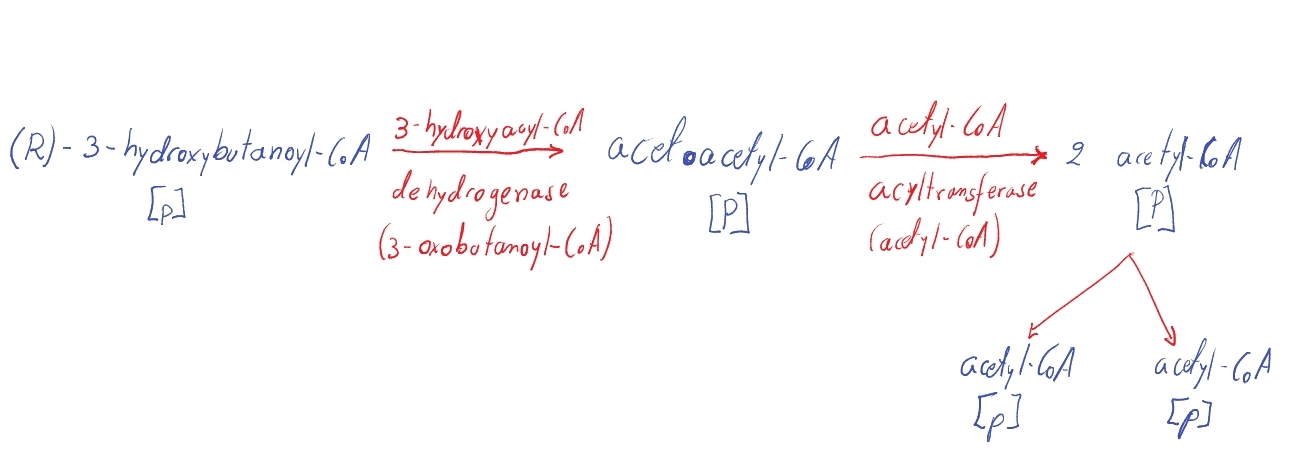 (R)-3-hydroxybutanoyl-CoA
[p]
3-hydroxyacyl-CoA
dehydrogenase
(3-oxobutanoyl-CoA)
acetoacetyl-CoA
[P]
acetyl-CoA
acyltransferase
(acetyl-CoA)
2 acetyl-CoA
[P]
acetyl-CoA
[p]
acetyl-CoA
[p]